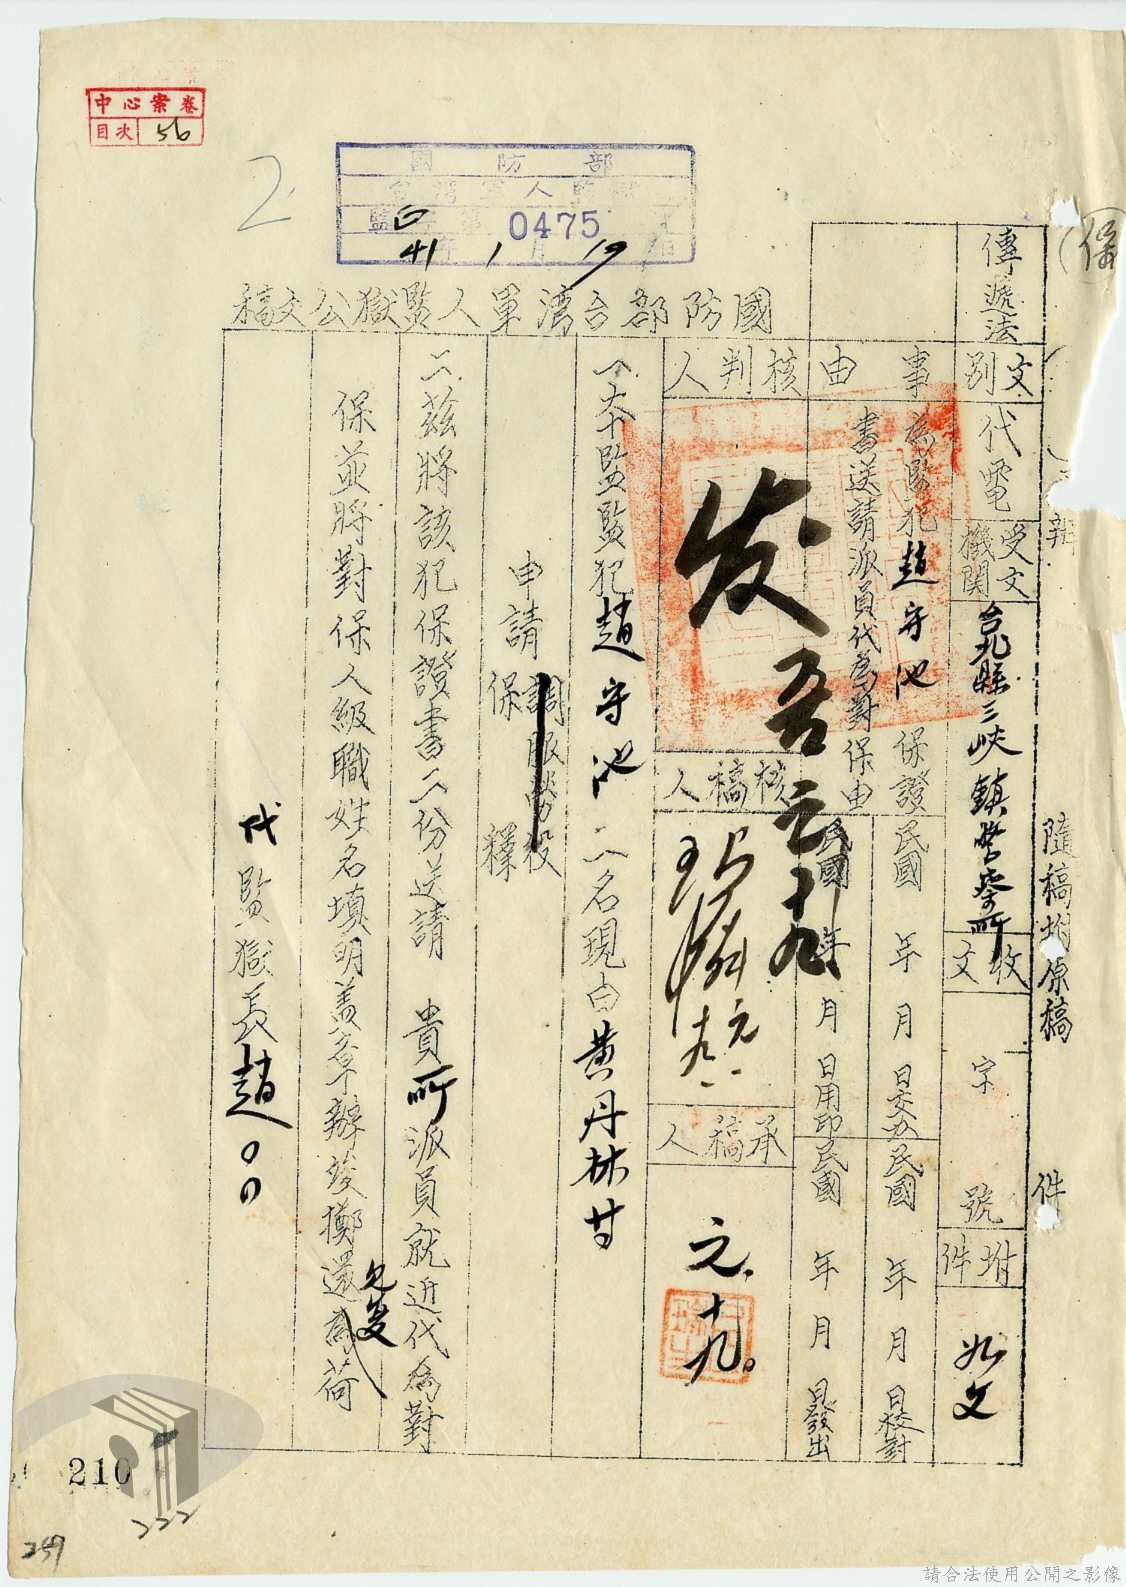 中心案卷
目次 56
2.
國防部
台灣軍人監獄
監 第 0475
41 年 1 月 19 日
國防部台灣軍人監獄公文稿
保
隨稿坿原稿 件
傳遞法
文別 代電
受文機関 台北縣三峽鎮警察所
收文 字 號
坿件 如文
事由 為監犯趙守池保證
書送請派員代為對保由
民國 年 月 日交办
民國 年 月 日校對
民國 年 月 日用印
民國 年 月 日發出
核判人 发 元 十九
核稿人 元 十九
承稿人 元.十九。
一、本監監犯趙守池一名現由黃丹林等
申請 調服勞役
保釋
二、茲將該犯保證書二份送請 貴所派員就近代為對
保並將對保人級職姓名填明蓋章辦竣擲還為荷
見复
代監獄長趙〇〇
210
222
259
請合法使用公開之影像